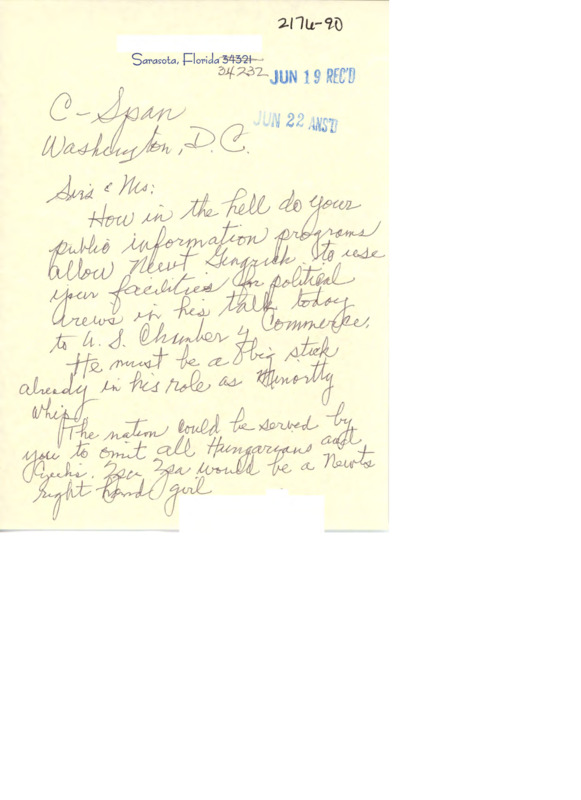 2176-90
Sarasota, Florida 34321
34232
JUN 19 REC'D
C-Span
JUN 22 ANS'D
Washington, D.C.
Sirs & Ms:
How in the hell do your
public information programs
allow Newt Gingrich to use
your facilities for political
views in his talk today
to U.S. Chamber of Commerce.
He must be a big stick
already in his role as Minority
Whip
The nation could be served by
you to omit all Hungaryans and
Zsa Zsa would be a Newts
right hand girl